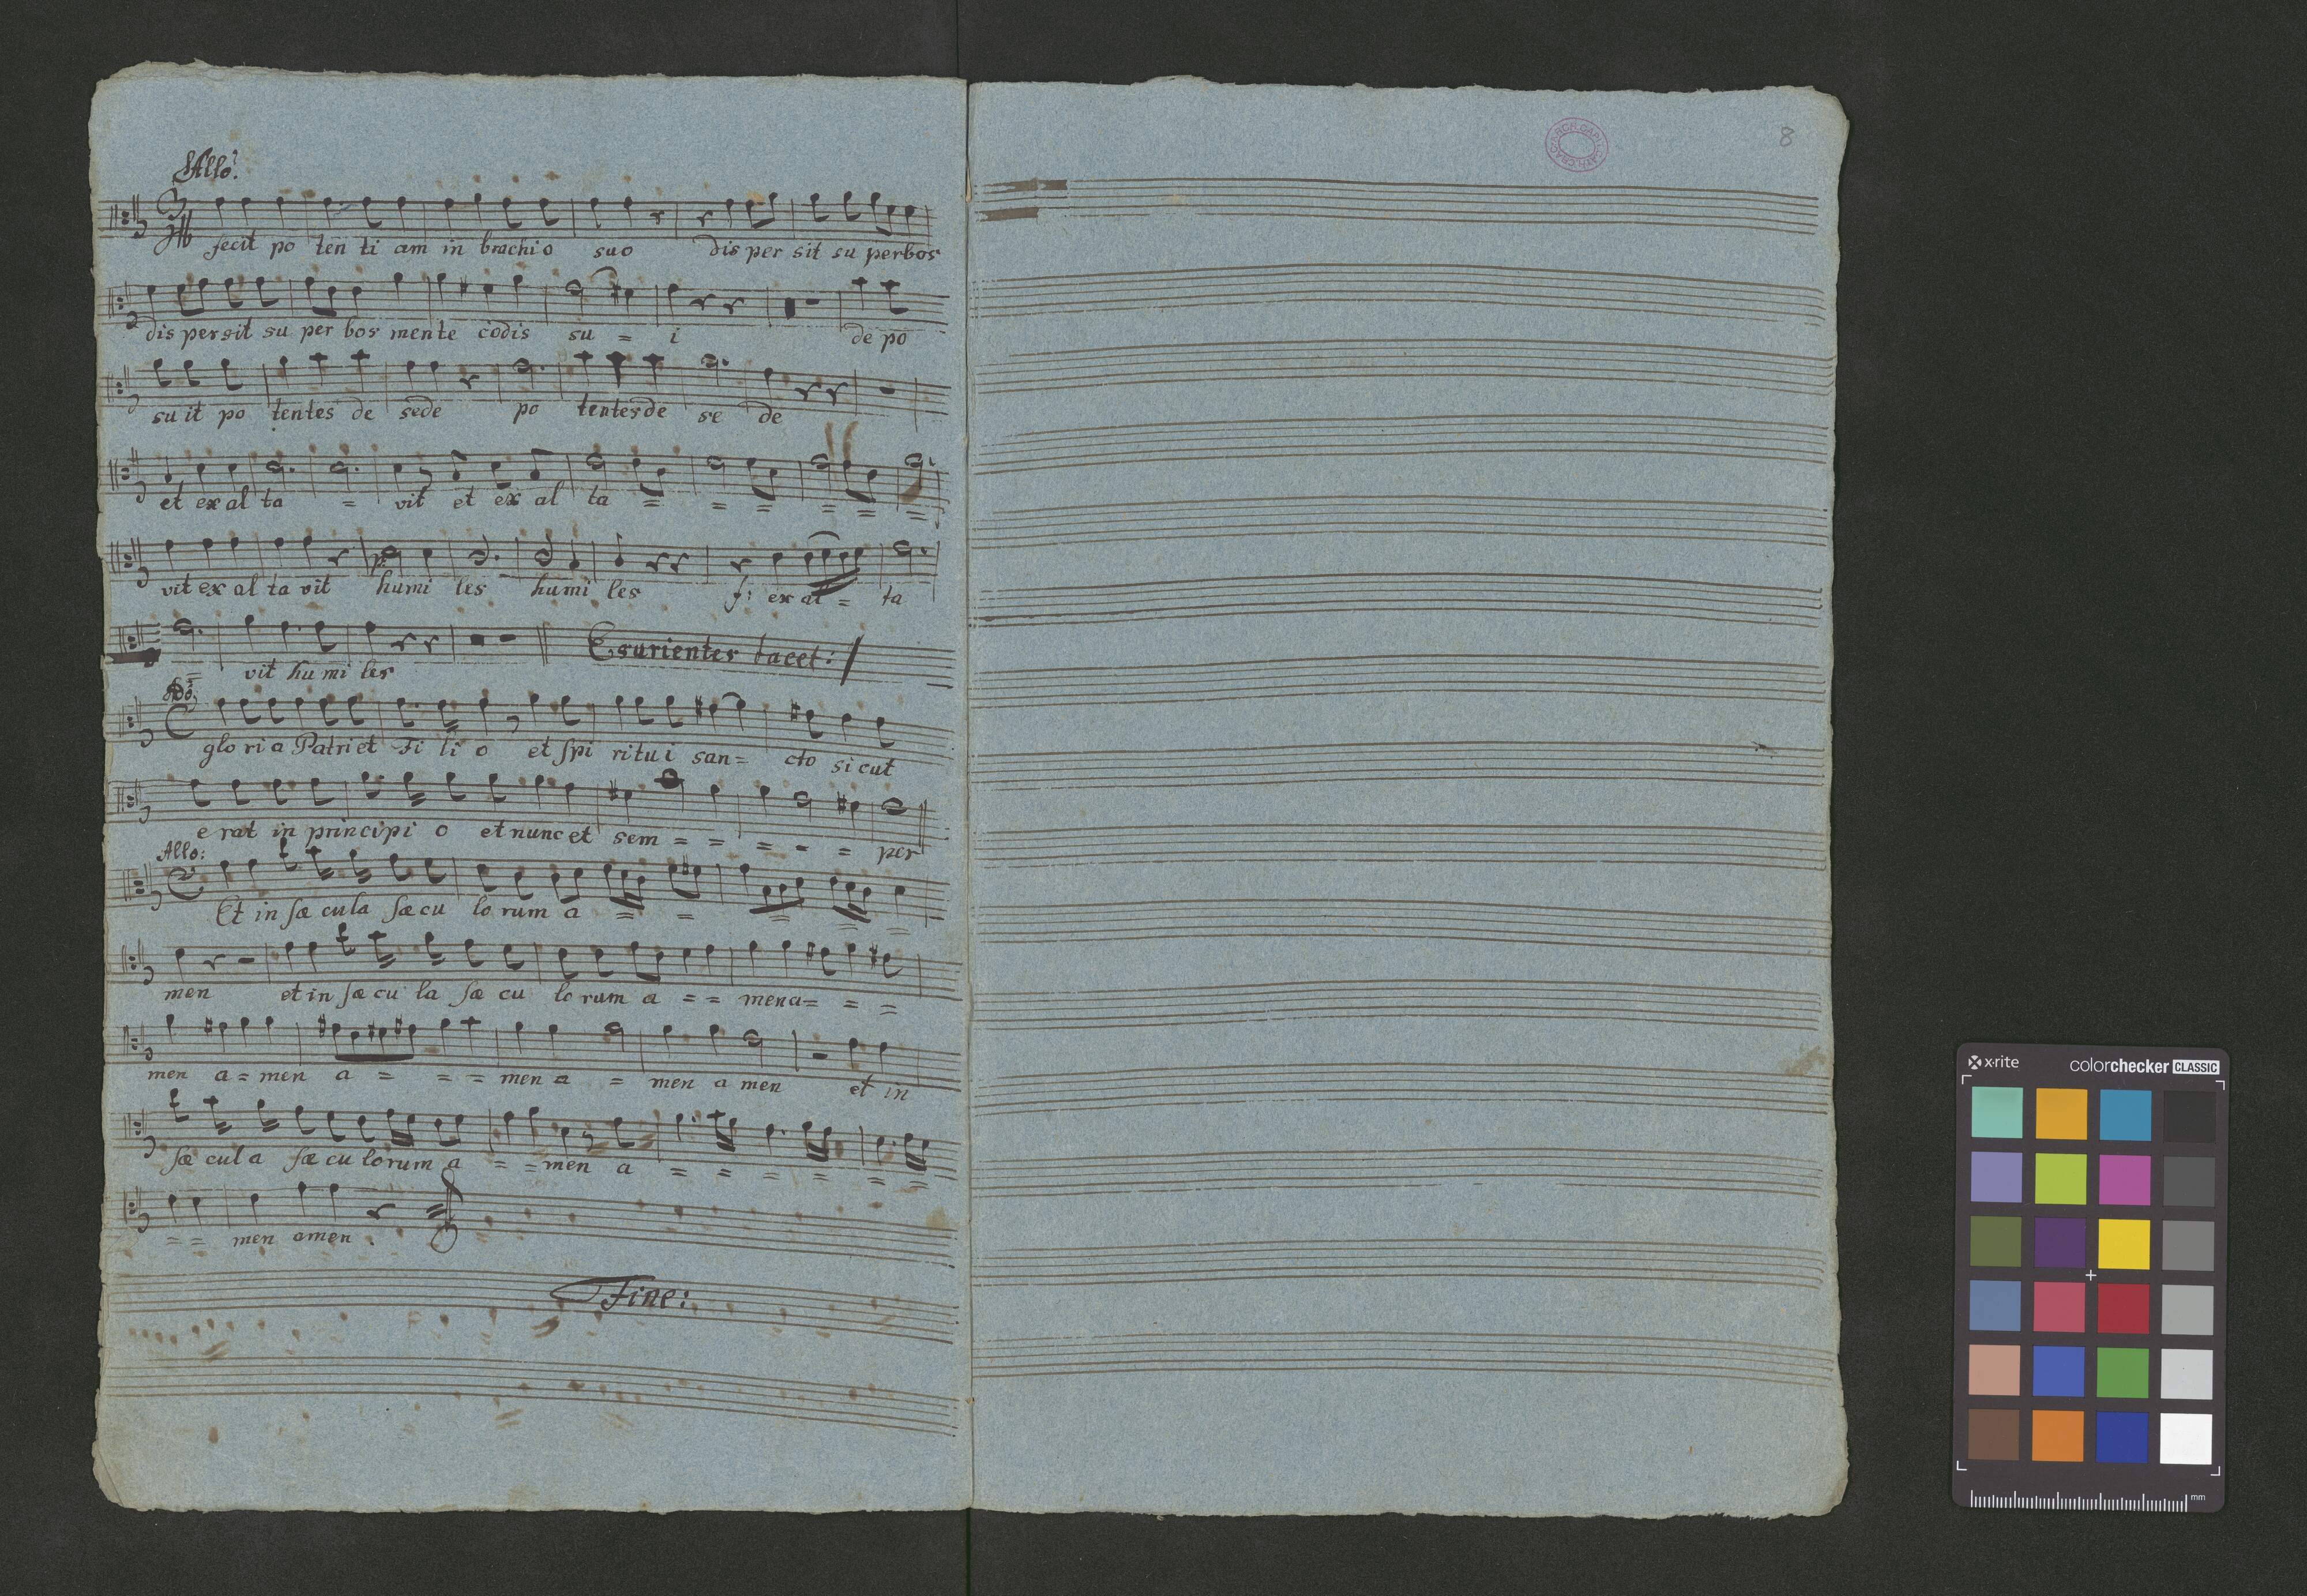 Allo:
fecit po ten ti am in brachio suo dis per sit su perbos
dis persit su per bos mente codis su = i de po
su it po tentes de sede po tentes de se de
et ex al ta = vit et ex al ta = = = = = =
vit ex al ta vit p: humi les humi les f: ex al = ta
= vit hu mi les Esurientes tacet:
Ado:
glo ri a Patri et Fi li o et spi ritu i san = cto si cut
e rat in principi o et nunc et sem = = = = = per
Allo:
Et in sæ cula sæcu lo rum a = = = = =
men et in sæ cu la sæ cu lo rum a = = mena= = =
men a = men a = = = men a = men a men et in
sæ cula sæ cu lorum a = = men a = = = = = =
= = men amen.
Fine:
8
ARCH. CAPIT. CATH. CRAC.
x·rite
colorchecker CLASSIC
mm